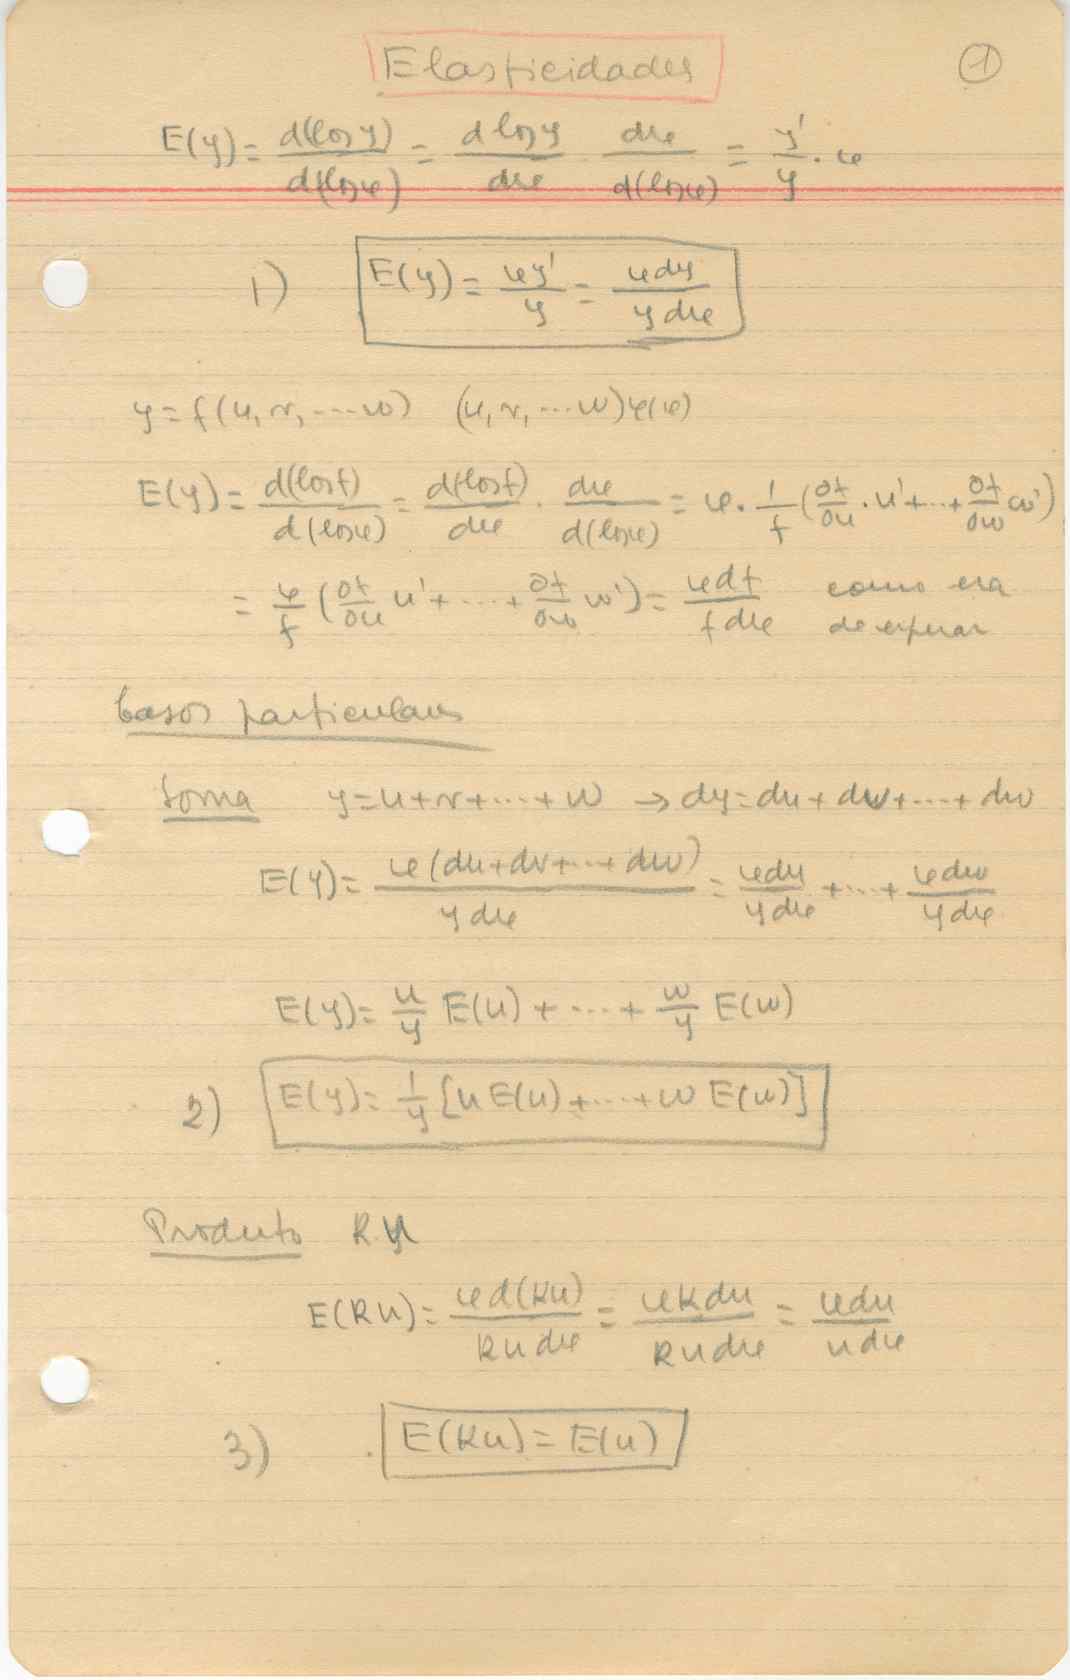 Elasticidades ①
E(y) = d(log y)/d(log x) = d log y/dx · dx/d(log x) = y'/y · x
1) E(y) = xy'/y = xdy/ydx
y = f(u, v, ... w) (u, v, ... w) φ(x)
E(y) = d(log f)/d(log x) = d(log f)/dx · dx/d(log x) = x · 1/f (∂f/∂u · u' + ... + ∂f/∂w w')
= x/f (∂f/∂u u' + ... + ∂f/∂w w') = xdf/fdx como era
de esperar
Casos particulares
Soma y = u + v + ... + w → dy = du + dv + ... + dw
E(y) = x(du + dv + ... + dw)/ydx = xdu/ydx + ... + xdw/ydx
E(y) = u/y E(u) + ... + w/y E(w)
2) E(y) = 1/y [u E(u) + ... + w E(w)]
Produto k.u
E(ku) = xd(ku)/kudx = xkdu/kudx = xdu/udx
3) E(ku) = E(u)